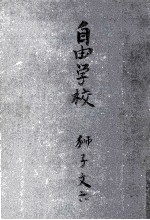 自由学校
獅子文六